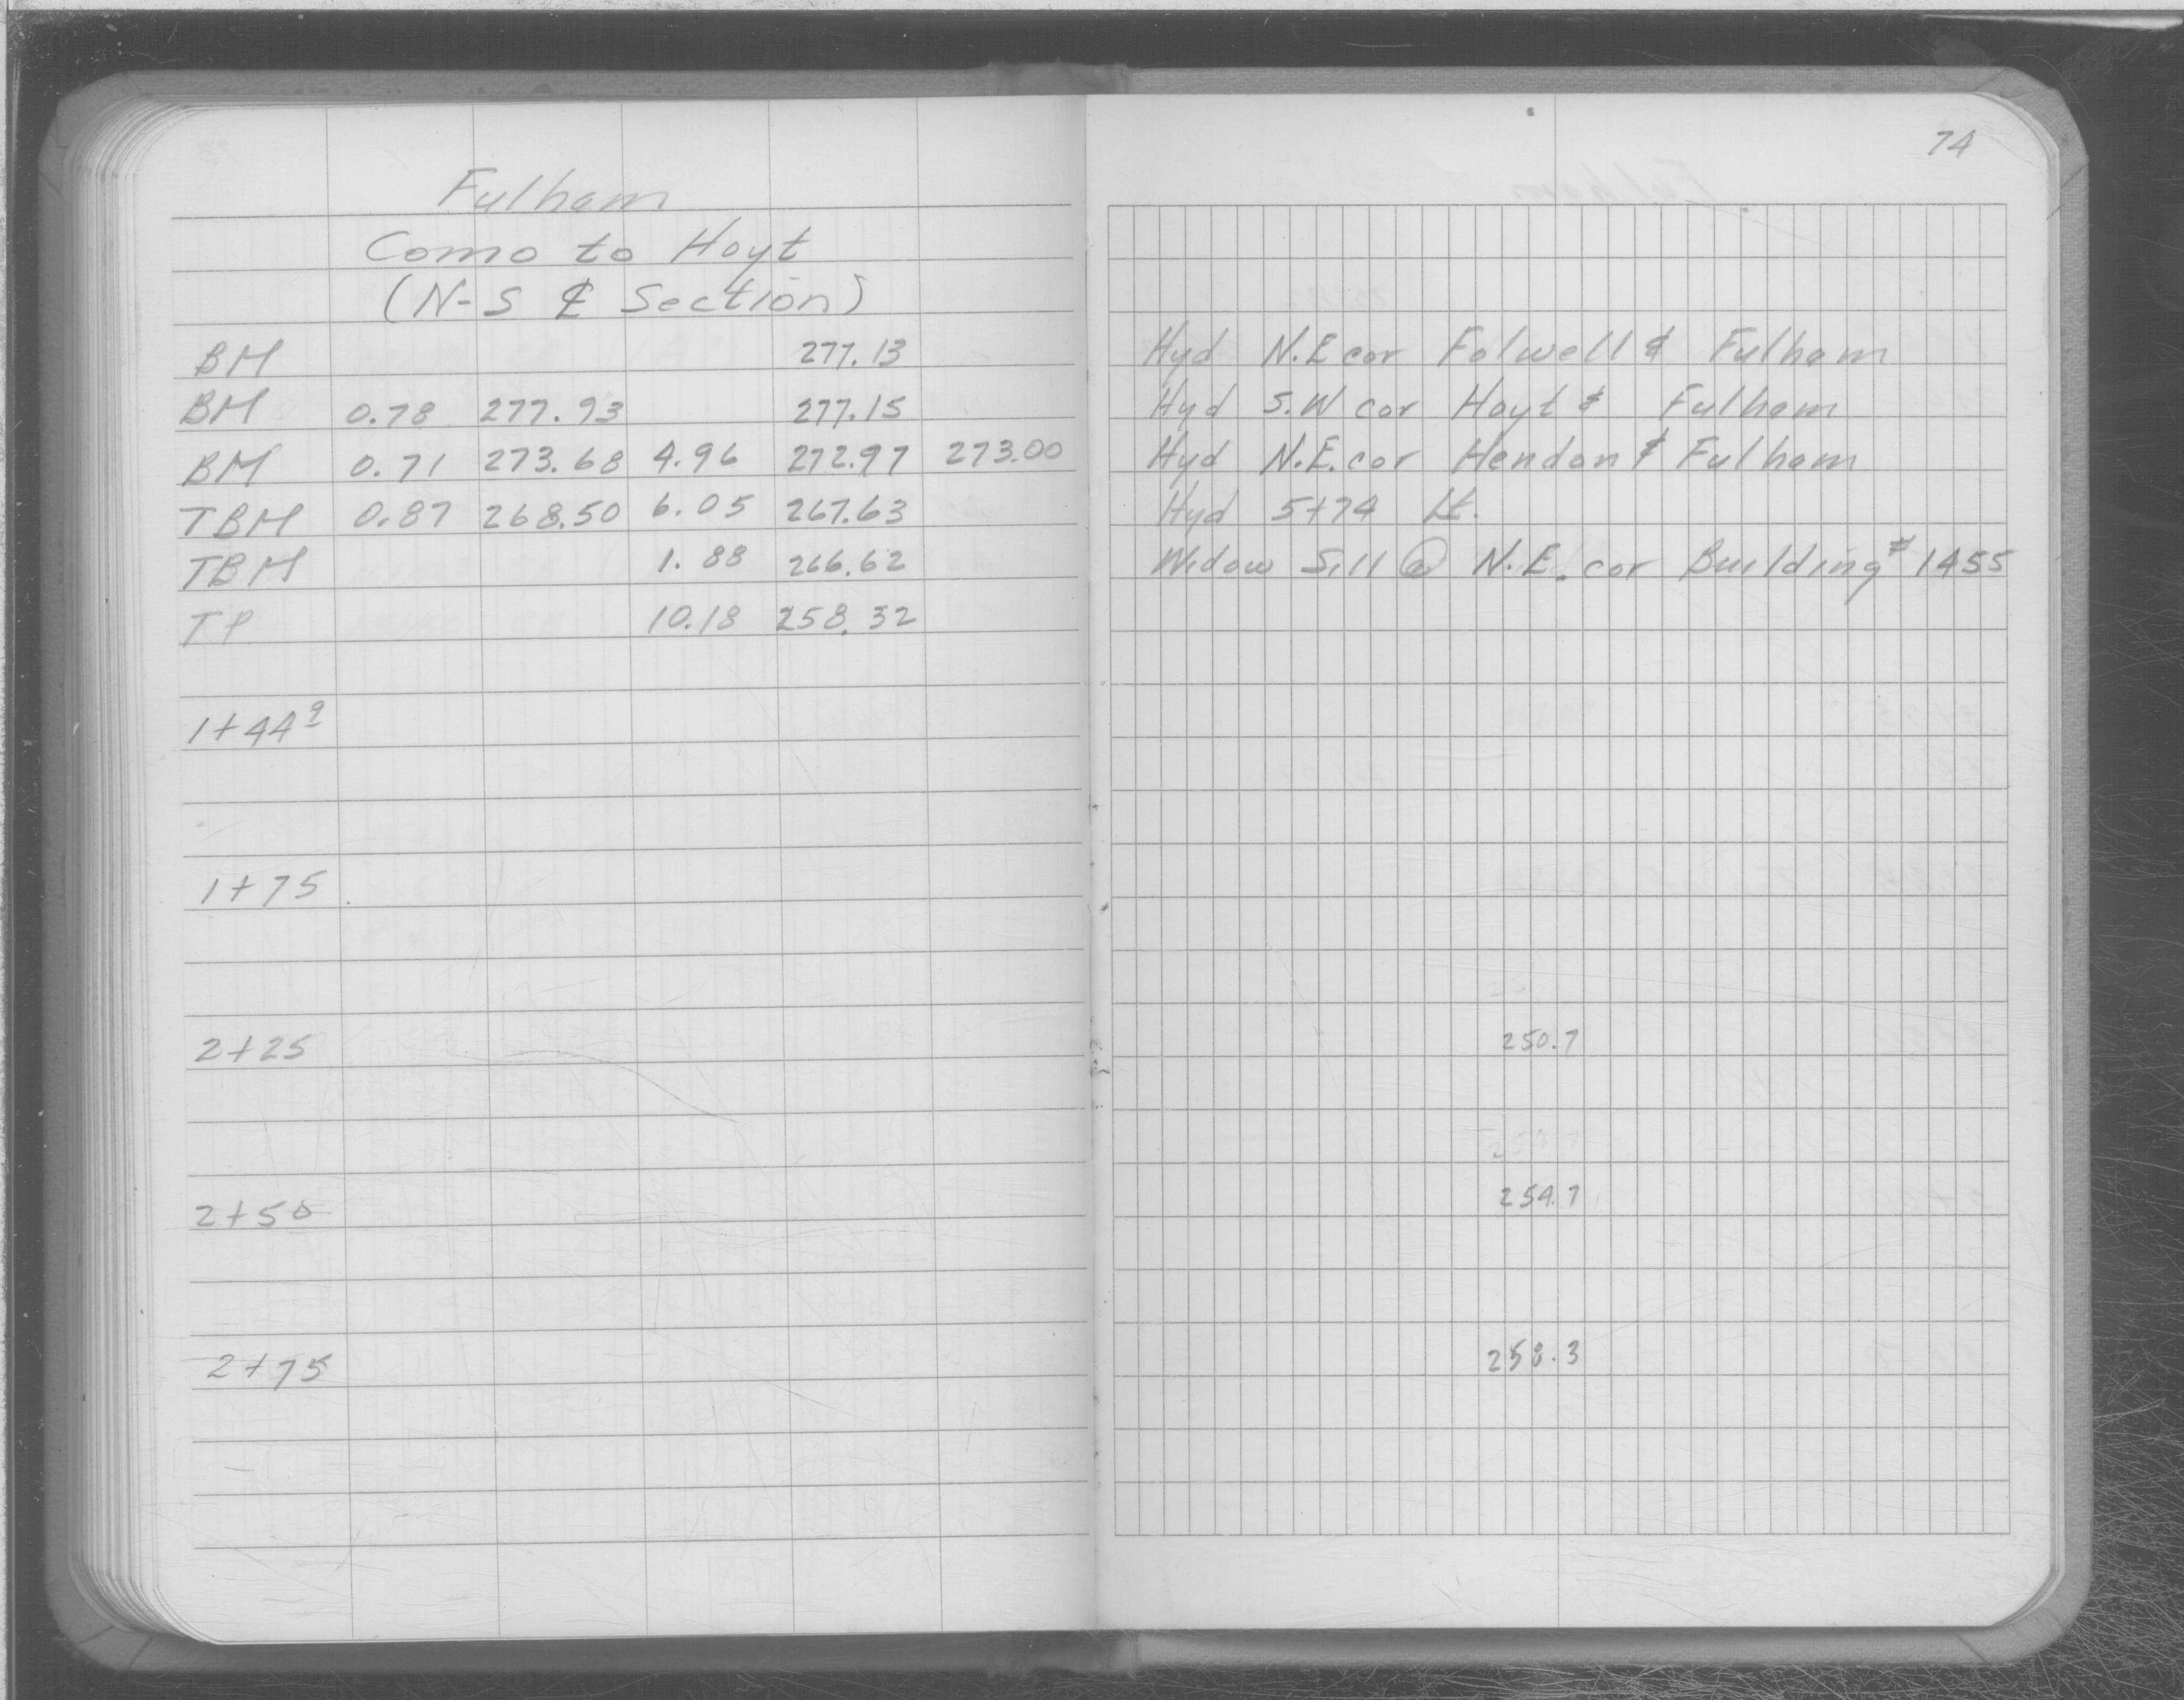 74
Fulham
Como to Hoyt
(N-S ℄ Section)
BM 277.13 Hyd N.E cor Folwell & Fulham
BM 0.78 277.93 277.15 Hyd S.W cor Hoyt & Fulham
BM 0.71 273.68 4.96 272.97 273.00 Hyd N.E. cor Hendon & Fulham
TBM 0.87 268.50 6.05 267.63 Hyd 5+74 Lt.
TBM 1.88 266.62 Widow Sill @ N.E. cor Building # 1455
TP 10.18 258.32
1+44⁹
1+75
2+25 250.7
2+50 254.7
2+75 258.3